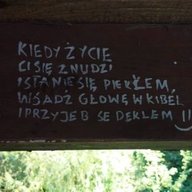 KIEDY ŻYCIE
CI SIĘ ZNUDZI
I STANIE SIĘ PIEKŁEM,
WSADŹ GŁOWĘ W KIBEL
I PRZYJEB SE DEKLEM !!